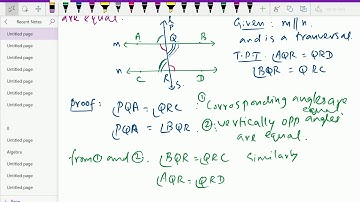 Recent Notes
Untitled page
Untitled page
Untitled page
Untitled page
Untitled page
Untitled page
8
Untitled page
Algebra
Untitled page
Untitled page
Untitled page
are equal.
P
A Q B
m
n
C R D
S
Given: m||n.
and is a tranversal.
T.P.T ∠AQR = ∠QRD
∠BQR = QRC
Proof: ∠PQA = ∠QRC ① Corresponding angles are equal
∠PQA = ∠BQR ②: vertically opp angles
are equal.
from ① and ②. ∠BQR = ∠QRC Similarly
∠AQR = ∠QRD